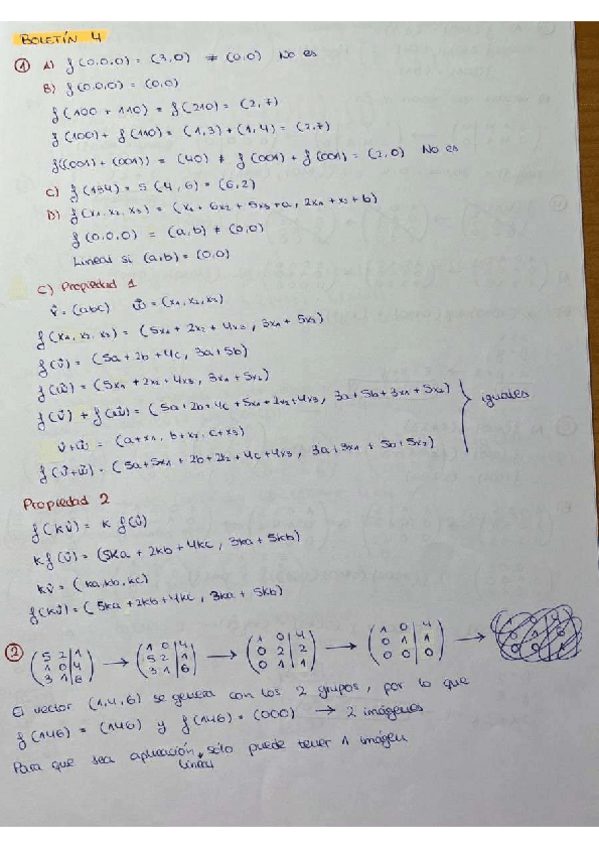 BOLETÍN 4
① A) f(0,0,0) = (3,0) ≠ (0,0) No es
B) f(0,0,0) = (0,0)
f(100 + 110) = f(210) = (2,7)
f(100) + f(110) = (1,3) + (1,4) = (2,7)
f((001) + (001)) = (40) ≠ f(001) + f(001) = (2,0) No es
C) f(134) = 5(4,6) = (6,2)
D) f(x₁, x₂, x₃) = (x₁ + 6x₂ + 5x₃ + a, 2x₁ + x₂ + b)
f(0,0,0) = (a,b) ≠ (0,0)
Lineal si (a,b) = (0,0)
C) Propiedad 1
v̂ = (abc) ŵ = (x₁, x₂, x₃)
f(x₁, x₂, x₃) = (5x₁ + 2x₂ + 4x₃, 3x₁ + 5x₂)
f(v̂) = (5a + 2b + 4c, 3a + 5b)
f(ŵ) = (5x₁ + 2x₂ + 4x₃, 3x₁ + 5x₂)
f(v̂) + f(ŵ) = (5a + 2b + 4c + 5x₁ + 2x₂ + 4x₃, 3a + 5b + 3x₁ + 5x₂)
iguales
v̂+ŵ = (a+x₁, b+x₂, c+x₃)
f(v̂+ŵ) = (5a + 5x₁ + 2b + 2x₂ + 4c + 4x₃, 3a + 3x₁ + 5b + 5x₂)
Propiedad 2
f(kv̂) = k f(v̂)
kf(v̂) = (5ka + 2kb + 4kc, 3ka + 5kb)
kv̂ = (ka, kb, kc)
f(kv̂) = (5ka + 2kb + 4kc, 3ka + 5kb)
② (5 2 | 1 → (1 0 | 4 → (1 0 | 4 → (1 0 | 4 →
1 0 | 4 5 2 | 1 0 2 | 2 0 1 | 1
3 1 | 6) 3 1 | 6) 0 1 | 1) 0 0 | 0)
El vector (1,4,6) se genera con los 2 grupos, por lo que
f(146) = (146) y f(146) = (000) → 2 imágenes
Para que sea aplicación lineal sólo puede tener 1 imágen